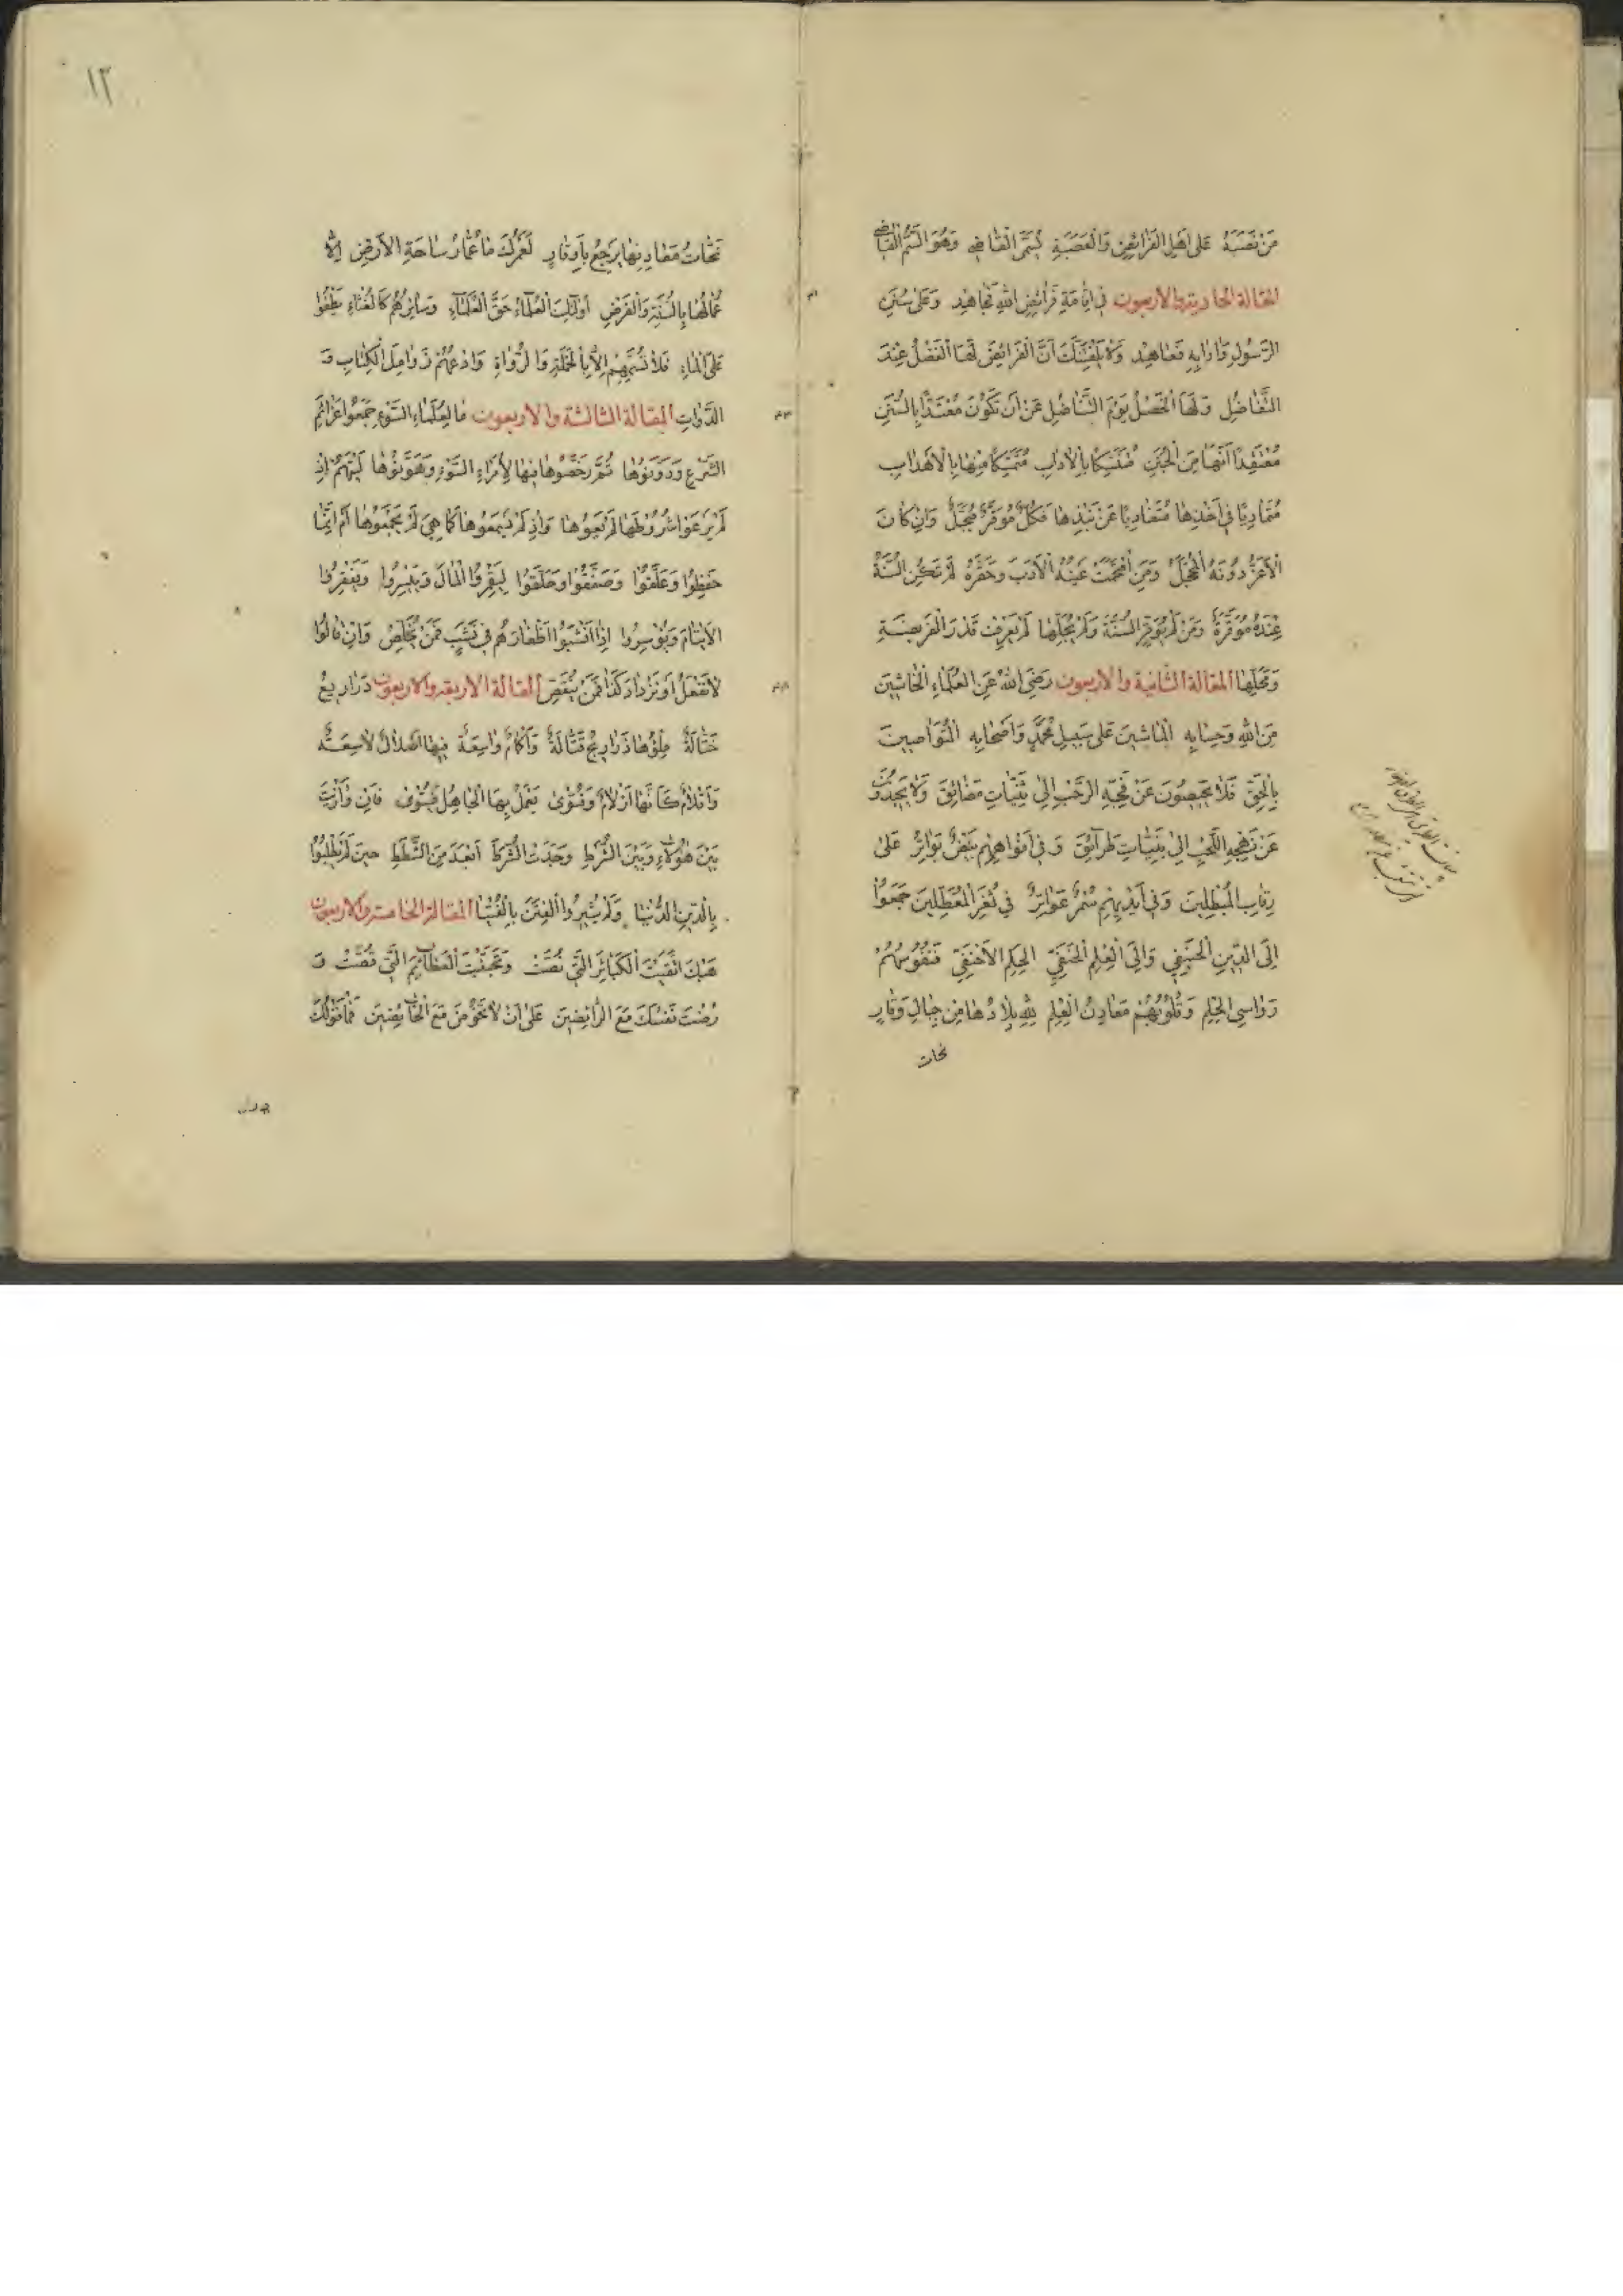 مَنْ نَصَبَهُ عَلَى اَهْلِ الفَرَائِضِ وَالْعَصَبَةِ يُسَمَّى الْقَاضِي وَهُوَ السَّمُّ القَاضِي
المقالة الحادية والاربعون في اِقَامَةِ فَرَائِضِ اللهِ فَجَاهِدْ وَعَلَى سُنَنِ
الرَّسُولِ وَآدَابِهِ فَعَاهِدْ وَلَا يَلْفِتَنَّكَ اَنَّ الفَرَائِضَ لَهَا الْفَضْلُ عِنْدَ
التَّفَاضُلِ وَلَهَا الْخَصْلُ يَوْمَ التَّنَاضُلِ عَنْ اَنْ تَكُوْنَ مُعْتَدًّا بِالسُّنَنِ
مُعْتَقِدًا اَنَّهَا مِنَ الْجُنَنِ مُتَنَسِّكًا بِالآدَابِ مُتَمَسِّكًا مِنْهَا بِالْاَهْدَابِ
مُتَمَادِيًا فِي اَخْذِهَا مُتَفَادِيًا عَنْ نَبْذِهَا فَكُلٌّ مُوَقَّرٌ مُبَجَّلٌ وَاِنْ كَانَ
الْاَغَرُّ دُونَهُ الْمُحَجَّلُ وَمَنِ اقْتَحَمَتْ عَيْنُهُ الْاَدَبَ وَحَقَّرَهُ لَمْ تَكُنِ السُّنَّةُ
عِنْدَهُ مُوَقَّرَةً وَمَنْ لَمْ يُوَقِّرِ السُّنَّةَ وَلَمْ يُجِلَّهَا لَمْ يَعْرِفْ قَدْرَ الْفَرِيضَةِ
وَمَحَلَّهَا المقالة الثانية والاربعون رَضِيَ اللهُ عَنِ العُلَمَاءِ الْخَاشِينَ
مِنَ اللهِ وَحِسَابِهِ الْمَاشِينَ عَلَى سَبِيلِ مُحَمَّدٍ وَاَصْحَابِهِ الْمُتَوَاصِينَ
بِالْحَقِّ فَلَا يَحِيصُونَ عَنْ فَجِّهِ الرَّحْبِ اِلَى ثَنِيَّاتِ مَضَائِقَ وَلَا يَحِيدُونَ
عَنْ نَهْجِهِ اللَّحْبِ اِلَى بُنَيَّاتِ طَرَآئِقَ وَ فِي اَفْوَاهِهِمْ بِيْضٌ بَوَاتِرُ عَلَى
رِقَابِ الْمُبْطِلِينَ وَفِي اَيْدِيهِمْ سُمْرٌ عَوَاتِرُ فِي ثُغَرِ الْمُعَطِّلِينَ جَمَعُوْا
اِلَى الدِّينِ الْحَنِيفِيِ وَاِلَى الْعِلْمِ الْحَنَفِيِّ الْحِلْمَ الْاَحْنَفِيَّ فَنُفُوْسُهُمْ
رَوَاسِي الْحِلْمِ وَقُلُوْبُهُمْ مَعَادِنُ الْعِلْمِ لِلّهِ بِلَادُهَا مِنْ جِبَالِ وَقَارٍ
نحات
١٣
نَحَّاتُ مَعَادِنِهَا يَرْجِعُ بِاَوْقَارٍ لَعَمْرُكَ مَا عُمَّارُ سَاحَةِ الْاَرْضِ اِلَّا
عُمَّالُهَا بِالسُّنَّةِ وَالْفَرْضِ اُولٰئِكَ الْعُلَمَآءُ حَقَّ الْعُلَمَآءِ وَسَائِرُهُمْ كَالْغُثَاءِ يَطْفُو
عَلَى الْمَاءِ فَلَا تُسَمِّهِمْ اِلَّا بِالْحَمَلَةِ وَالرُّوَاةِ وَادْعُهُمْ زَوَامِلَ الْكِتَابِ وَ
الدَّوَاتِ المقالة الثالثة والاربعون مَا لِعُلَمَاءِ السُّوْءِ جَمَعُوا عَزَائِمَ
الشَّرْعِ وَدَوَّنُوْهَا ثُمَّ رَخَّصُوهَا فِيهَا لِأُمَرَاءِ السُّوْءِ وَهَوَّنُوْهَا لَيْتَهُمْ اِذْ
لَمْ يَرْعَوْا شُرُوطَهَا لَمْ يَعُوهَا وَاِذْ لَمْ يُسْمِعُوهَا كَمَا هِيَ لَمْ يَجْمَعُوهَا اَمْ اِنَّمَا
حَفِظُوا وَعَلَّقُوْا وَصَفَّقُوْا وَحَلَّقُوْا لِيَقْمِرُوا الْمَالَ وَيَيْسِرُوا وَيُفْقِرُوا
الْاَيْتَامَ وَيُوْسِرُوا اِذَا اَنْشَبُوا اَظْفَارَهُمْ فِي نَشَبٍ فَمَنْ يُخَلِّصُ وَاِنْ قَالُوا
لَا نَفْعَلُ اَوْ نَزْدَادَ كَذَا فَمَنْ يُنَقِّصُ المقالة الاربعة والاربعون دَرَارِيعُ
خَتَّالَةٌ مِلْؤُهَا ذَرَارِيحُ قَتَّالَةٌ وَاَكْمَامٌ وَاسِعَةٌ فِيهَا اَصْلَالٌ لَاسِعَةٌ
وَاَقْلَامٌ كَاَنَّهَا اَزْلَامٌ وَفَتْوَى يَعْمَلُ بِهَا الْجَاهِلُ فَيَتْوَى فَاِنْ وَازَنْتَ
بَيْنَ هٰؤُلَاءِ وَبَيْنَ الشُّرَطِ وَجَدْتَ الشُّرَطَ اَبْعَدَ مِنَ الشَّطَطِ حِينَ لَمْ يَطْلُبُوْا
بِالدِّينِ الدُّنْيَا وَلَمْ يُثِيرُوا الْفِتَنَ بِالْفُتْيَا المقالة الخامسة والاربعون
هَبْكَ اتَّقَيْتَ الْكَبَائِرَ الَّتِي نُصَّتْ وَتَجَنَّبْتَ الْعَظَآئِمَ الَّتِي قُصَّتْ وَ
رُضْتَ نَفْسَكَ مَعَ الرَّائِضِينَ عَلَى اَنْ لَا تَخُوْضَ مَعَ الْخَآئِضِينَ فَمَا قَوْلُكَ